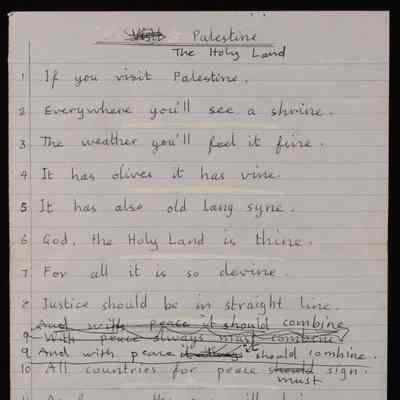 Visit Palestine
The Holy Land
1 If you visit Palestine.
2 Everywhere you'll see a shrine.
3 The weather you'll feel it fine.
4 It has olives it has vine.
5 It has also old lang syne.
6 God, the Holy Land is thine.
7 For all it is so devine.
8 Justice should be in straight line.
And with peace it should combine
9 With peace always must combine.
9 And with peace it should combine.
10 All countries for peace should sign.
must